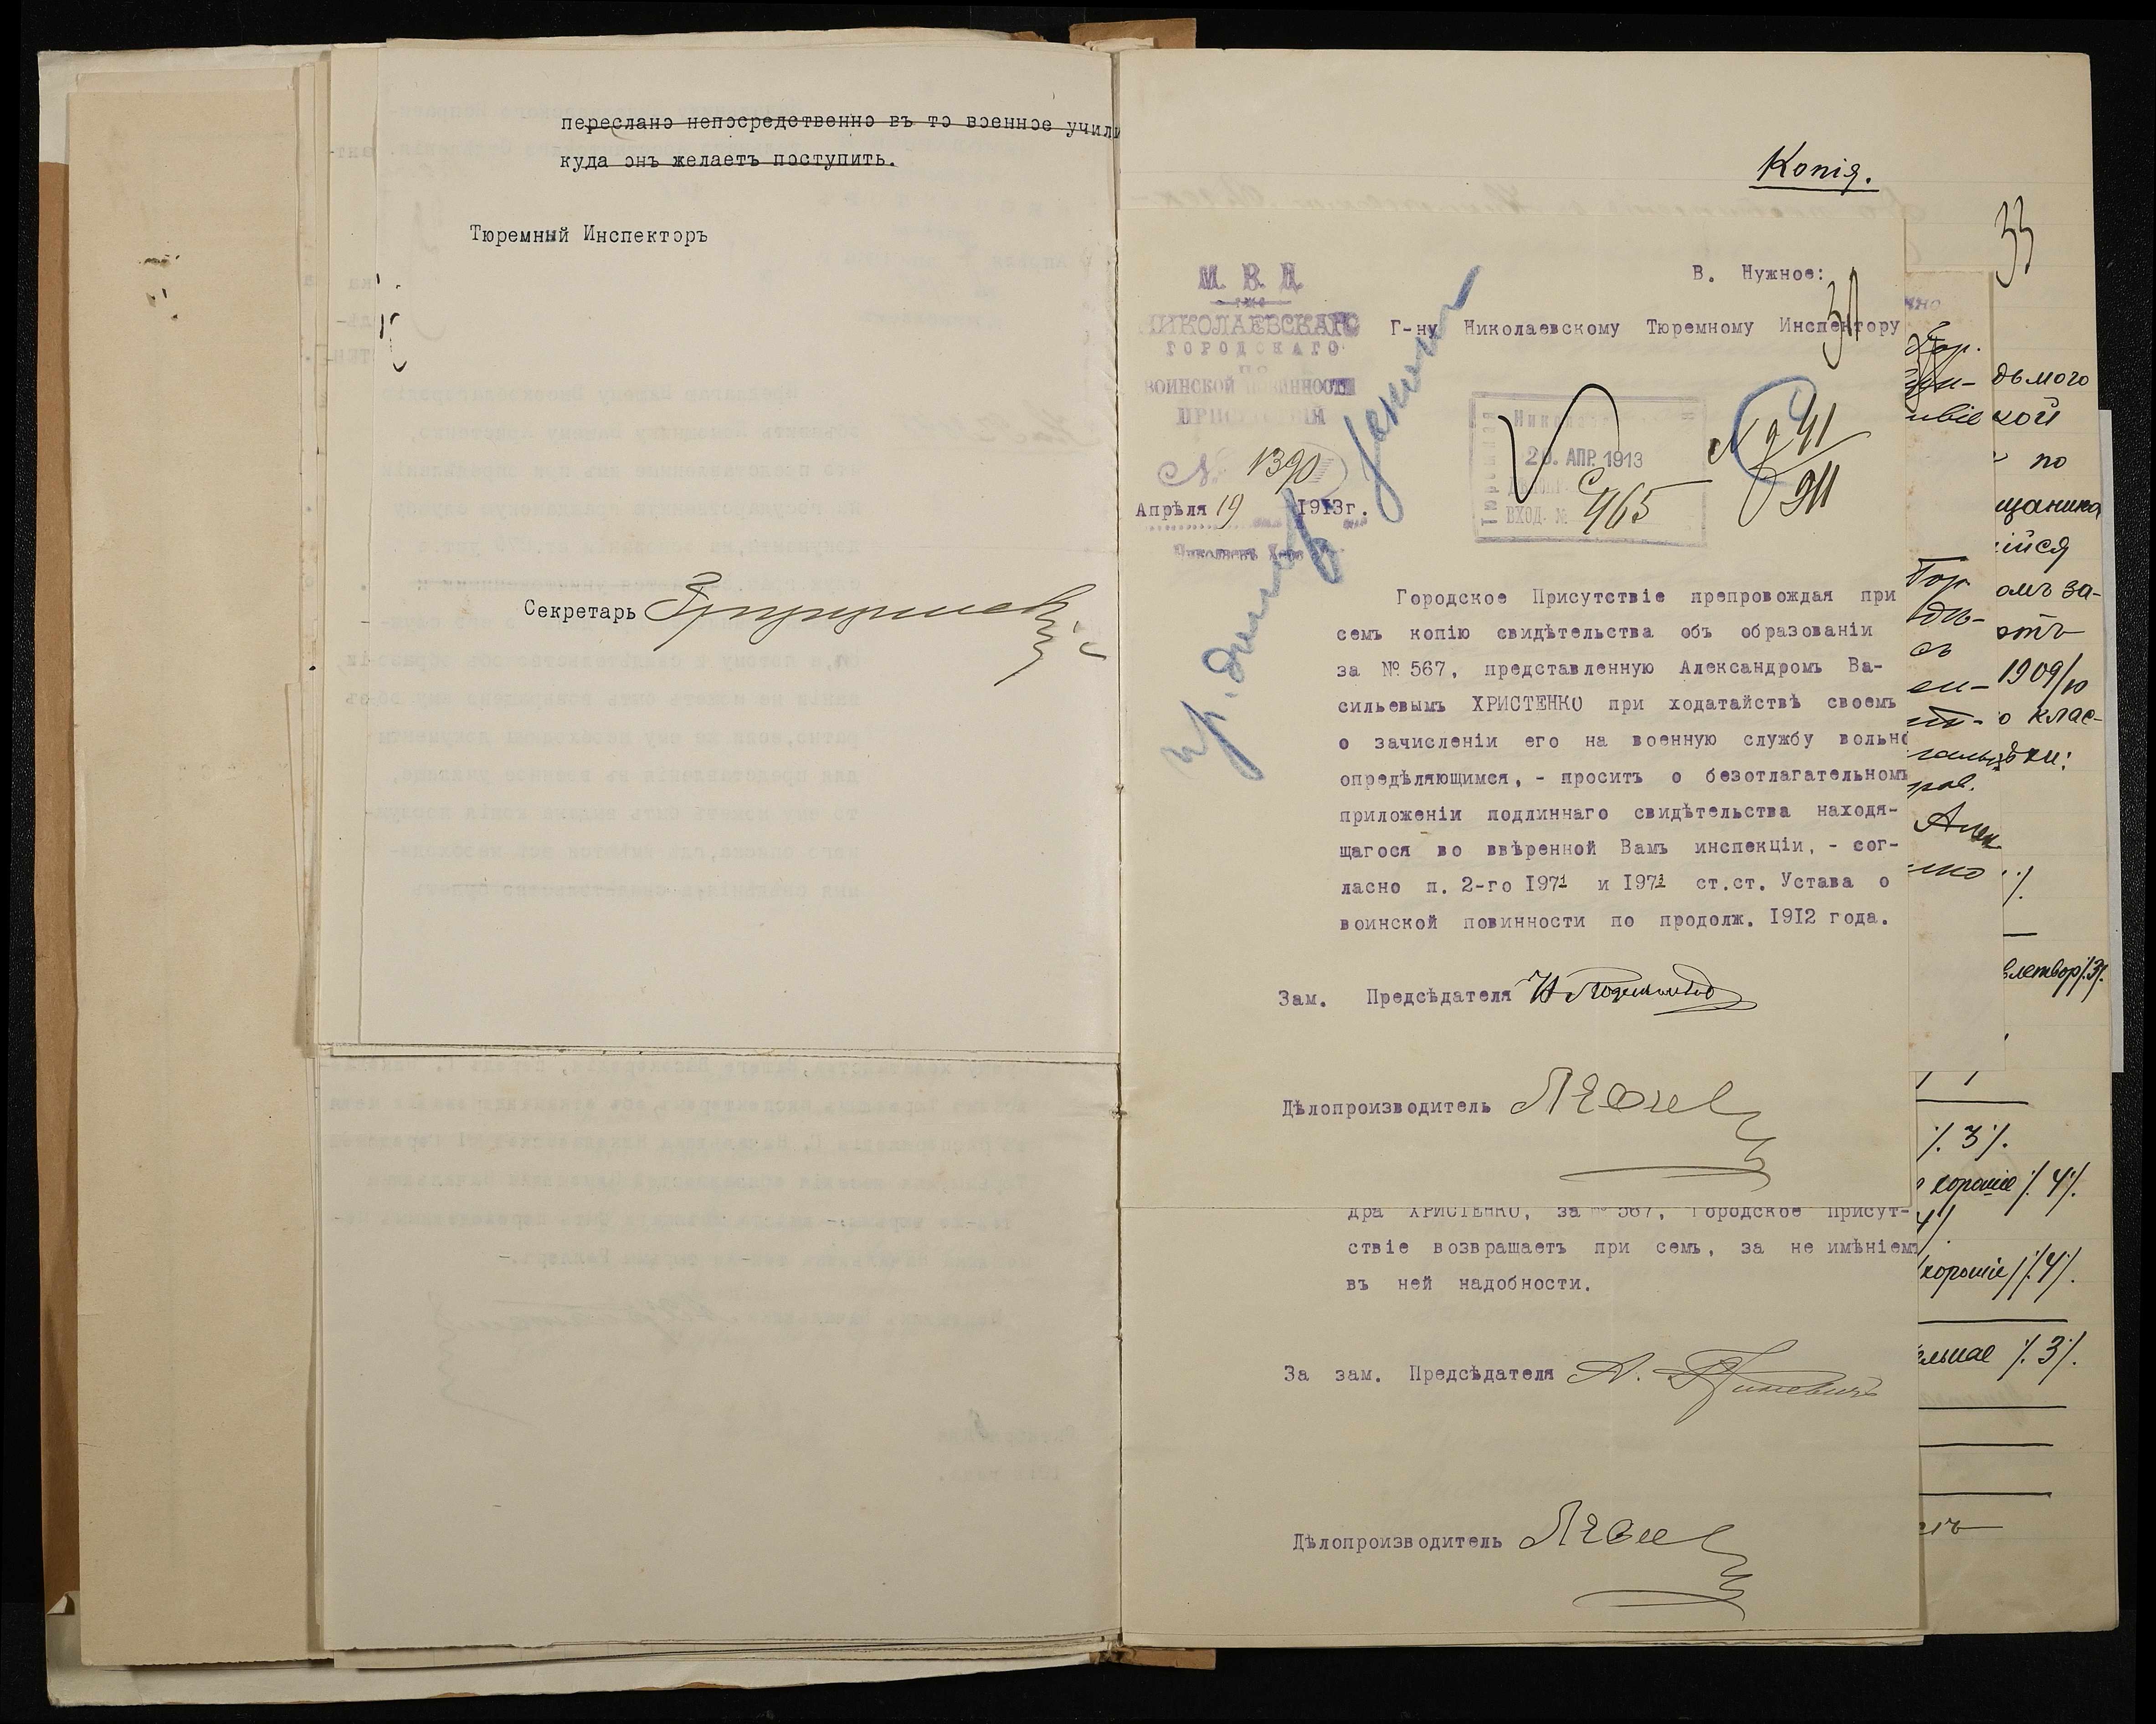 переслано непосредственно въ то военное учили
куда онъ желаетъ поступить.
Тюремный Инспекторъ
Секретарь
Копія.
33
В. Нужное:
31
М. В. Д.
НИКОЛАЕВСКАГО
ГОРОДСКАГО
ПО
ВОИНСКОЙ ПОВИННОСТИ
ПРИСУТСТВІЯ
№ 1390
Апрѣля 19 1913г.
Николаевъ Херс
Г-ну Николаевскому Тюремному Инспектору
20. АПР. 1913
ВХОД. № 465
№ 241
Городское Присутствіе препровождая при
семъ копію свидѣтельства объ образованіи
за № 567, представленную Александромъ Ва-
сильевымъ ХРИСТЕНКО при ходатайствѣ своемъ
о зачисленіи его на военную службу вольно
опредѣляющимся, - проситъ о безотлагательномъ
приложеніи подлиннаго свидѣтельства находя-
щагося во ввѣренной Вамъ инспекціи, - сог-
ласно п. 2-го I97¹ и I97³ ст.ст. Устава о
воинской повинности по продолж. I9I2 года.
Зам. Предсѣдателя
Дѣлопроизводитель
дра ХРИСТЕНКО, за № 567, Городское Присут-
ствіе возвращаетъ при семъ, за не имѣніемъ
въ ней надобности.
За зам. Предсѣдателя
Дѣлопроизводитель
дьмого
кой
по
щанина
ійся
омъ за-
отъ
1909/10
о клас-
влетвор/.3/.
/.3/.
хорошіе /.4/.
хорошіе /.4/.
ельное /.3/.